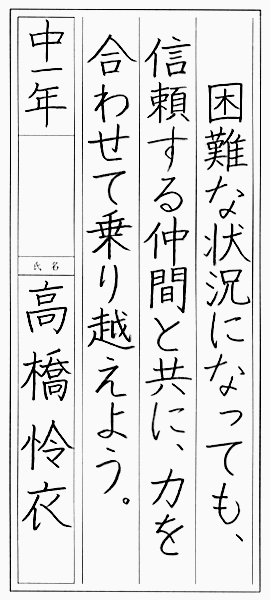 困難な状況になっても、
信頼する仲間と共に、力を
合わせて乗り越えよう。
中一年
氏名
高橋怜衣